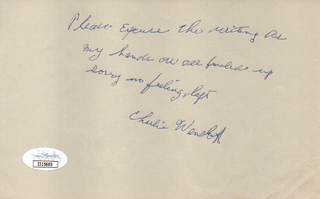 Please excuse the writing as
my hands are all up
sorry no feeling left
Charlie
JSA
II15693